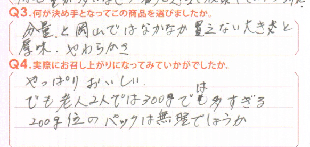 Q3.何が決め手となってこの商品を選びましたか。
分量と岡山ではなかなか買えない大きさと
厚味・やわらかさ
Q4.実際にお召し上がりになってみていかがでしたか。
やっぱりおいしい
でも老人2人では300gではも多すぎる
200g位のパックは無理でしょうか